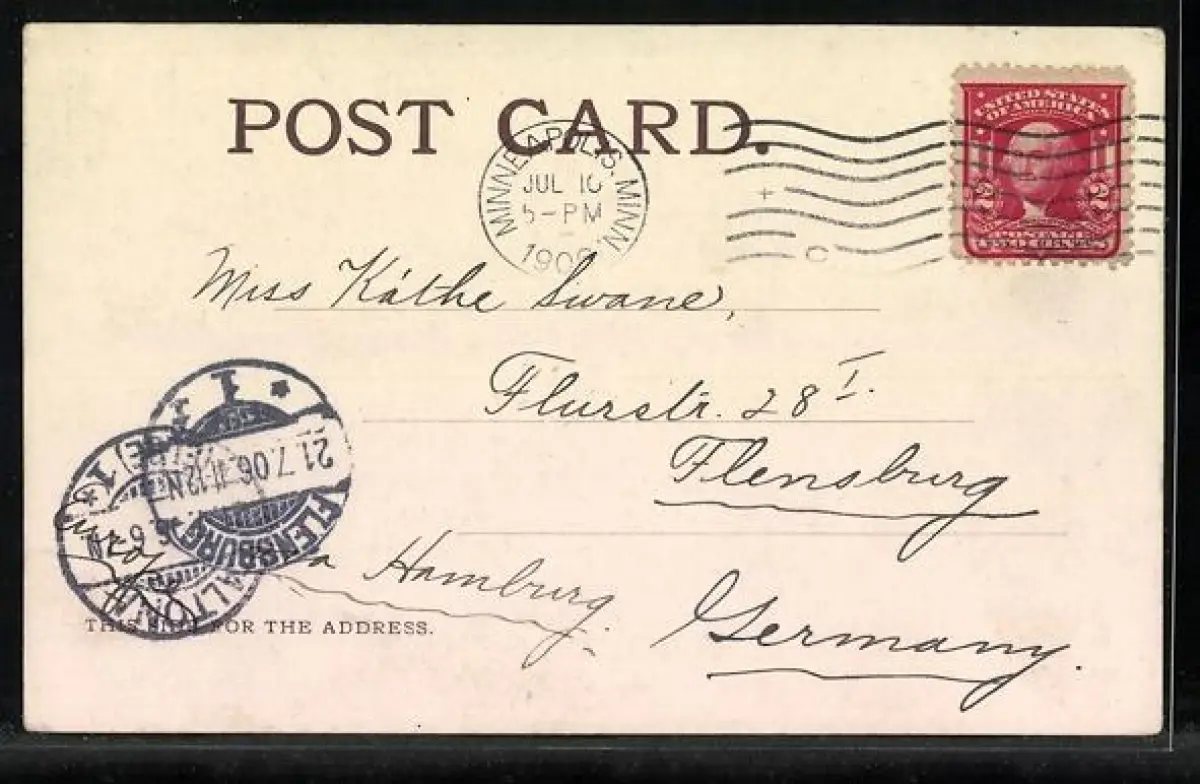 POST CARD.
UNITED STATES
OF AMERICA
2 2
POSTAGE
MINNEAPOLIS, MINN.
JUL 10
5-PM
190
C
Miss Käthe Swane,
Flurstr. 28 I.
Flensburg
Hamburg.
Germany.
1
21.7.06.11-12N
FLENSBURG
1
ALTONA
THIS SIDE FOR THE ADDRESS.